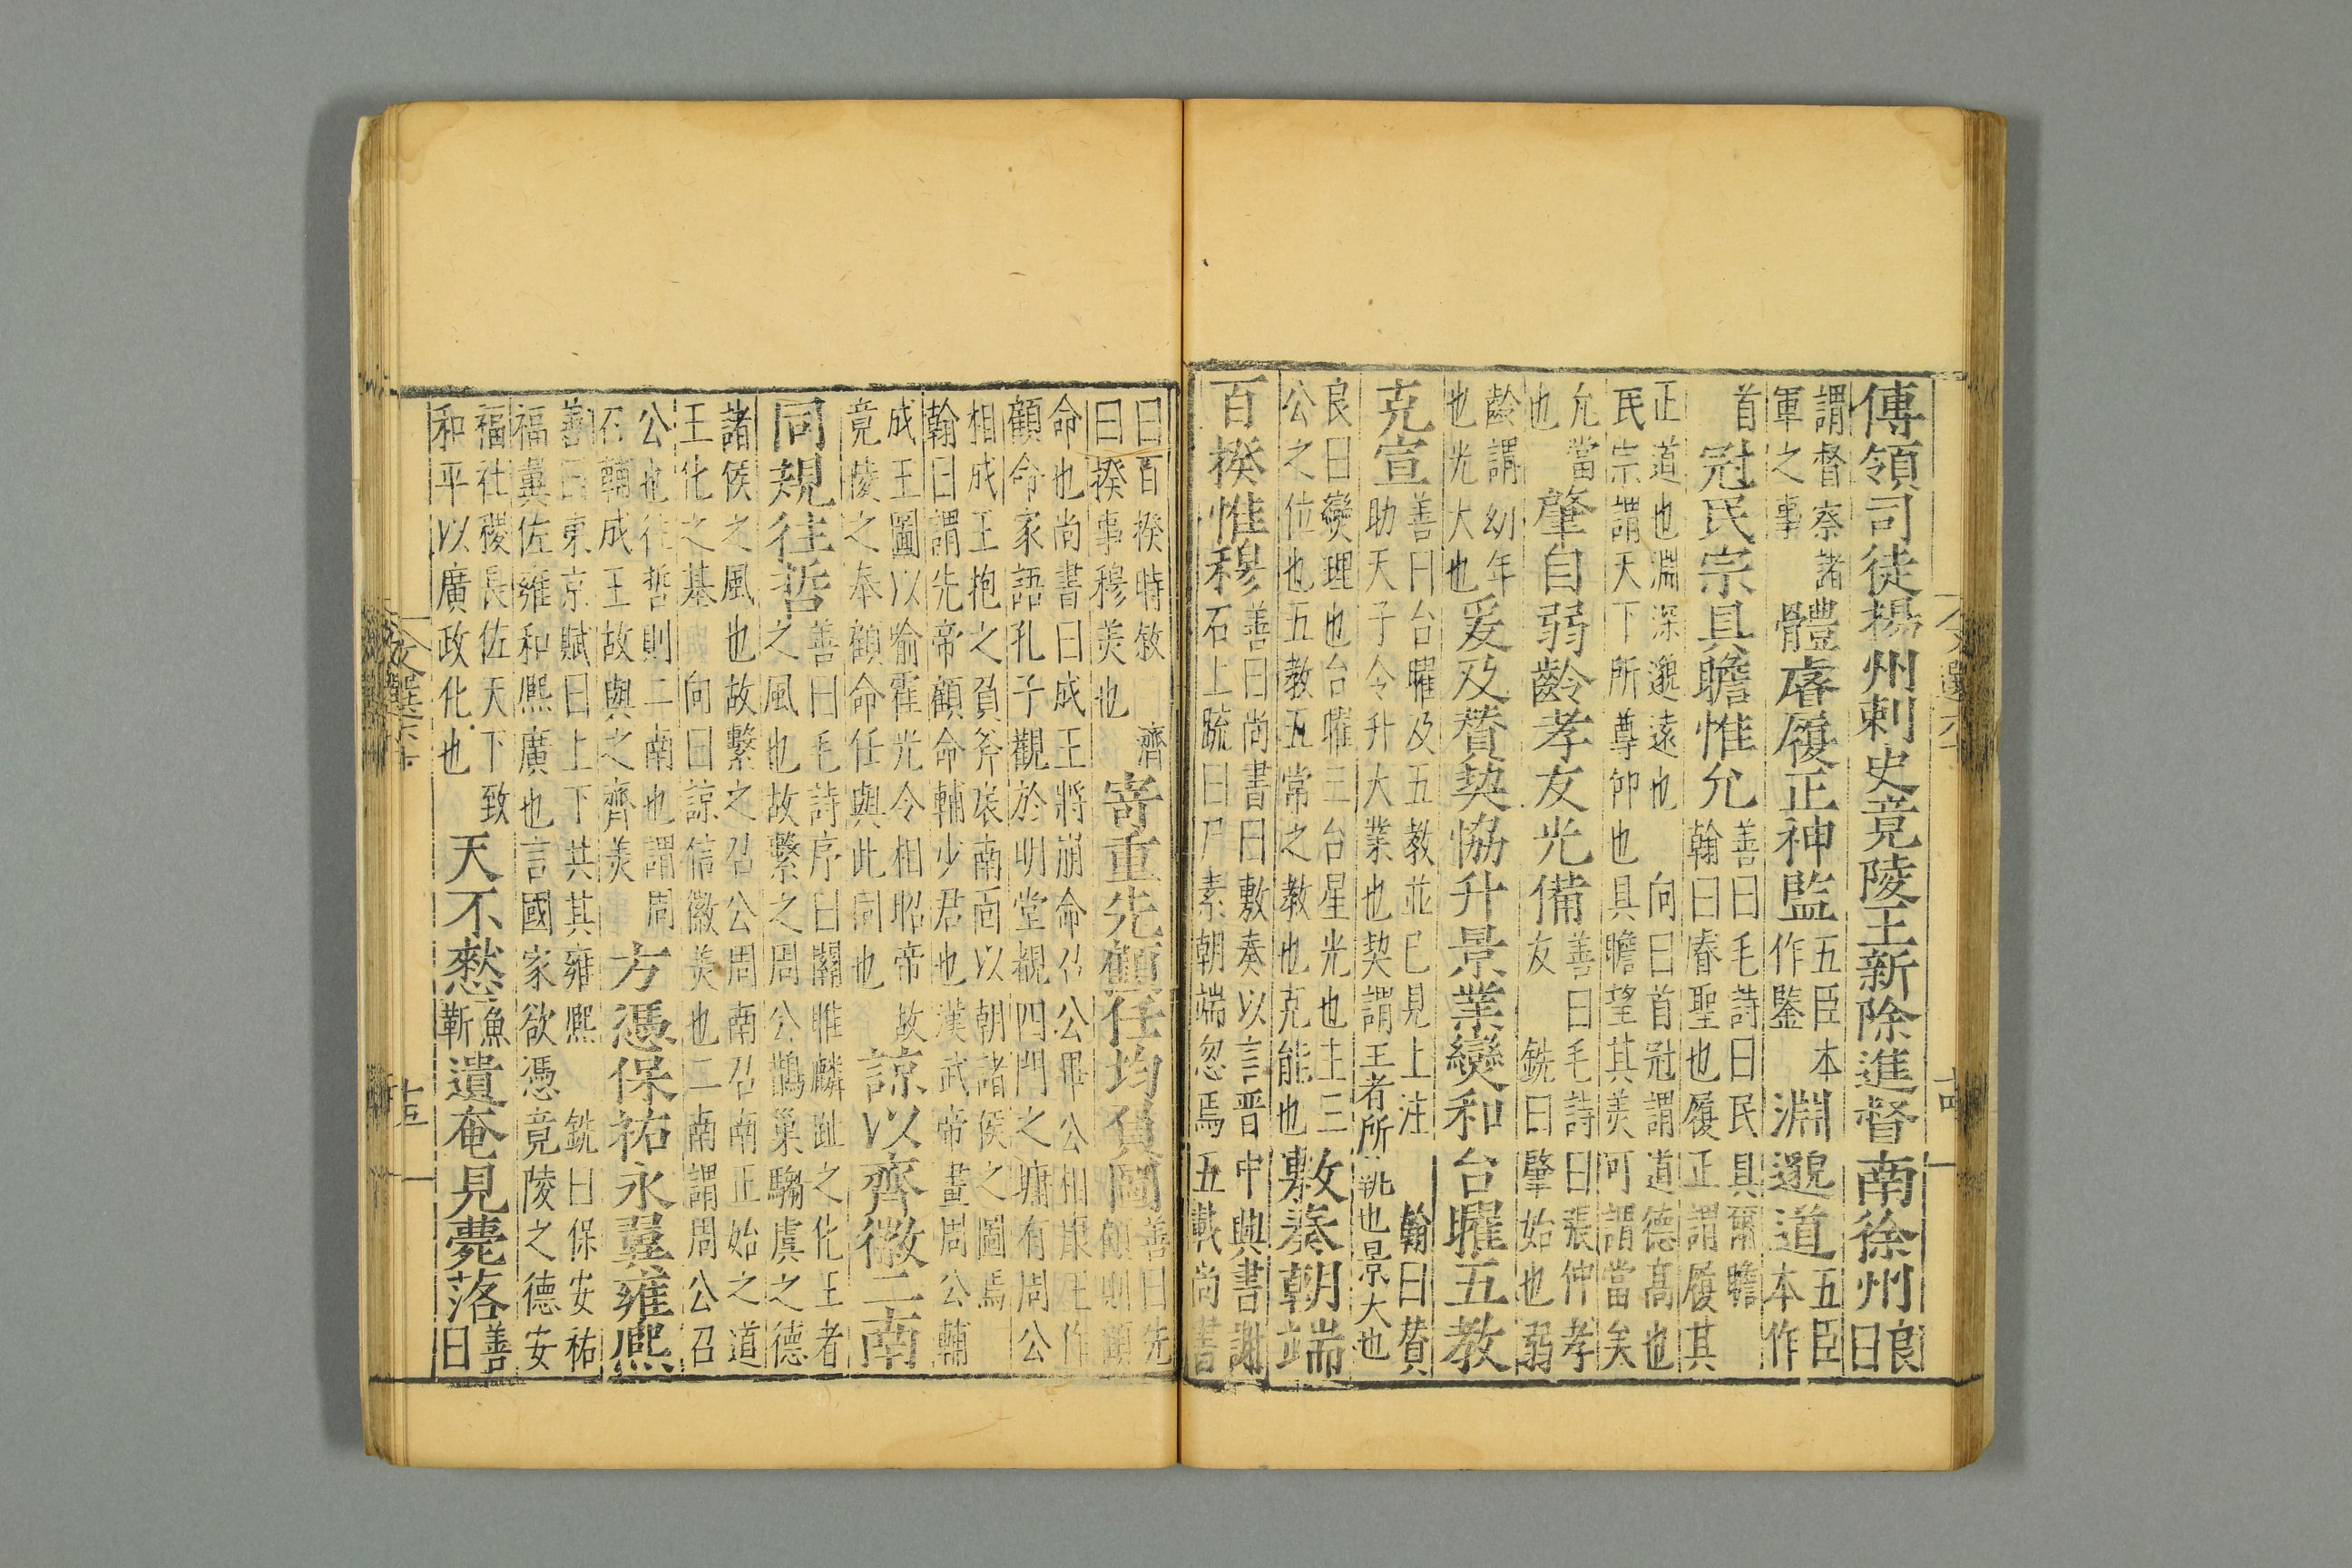 傅領司徒揚州刺史竟陵王新除進督南徐州良曰
謂督察諸
軍之事
體睿履正神監五臣本
作鑒
淵邈道五臣
本作
首
冠民宗具瞻惟允善曰毛詩曰民具爾瞻
翰曰睿聖也履正謂履其
正道也淵深邈遠也
民宗謂天下所尊仰也
向曰首冠謂道德髙也
具瞻望其美可謂當矣
允當
也
肇自弱齡孝友光備善曰毛詩曰張仲孝
友
銑曰肇始也弱
齡謂幼年
也光大也
爰及贊契恊升景業爕和台曜五教
克宣善曰台曜及五教並已見上注
翰曰賛
助天子令升大業也契謂王者所
也景大也
良曰爕理也台曜三台星光也主三
公之位也五教五常之教也克能也
敷奏朝端
百揆惟穆善曰尚書曰敷奏以言晋中興書謝
石上疏曰尸素朝端忽焉五載尚書
曰百揆時敘
濟
曰揆事穆美也
寄重先顧任均負圖善曰先
顧則顧
命也尚書曰成王將崩命召公畢公相康王作
顧命家語孔子觀於明堂覩四門之墉有周公
相成王抱之負斧扆南面以朝諸侯之圖焉
翰曰謂先帝顧命輔少君也漢武帝畫周公輔
成王圖以喻霍光令相昭帝故
竟陵之奉顧命任與此同也
諒以齊徽二南
同規往哲善曰毛詩序曰關雎麟趾之化王者
之風也故繫之周公鵲巢騶虞之德
諸侯之風也故繫之召公周南召南正始之道
王化之基
向曰諒信徽美也二南謂周公召
公也往哲則二南也謂周
召輔成王故與之齊美
方憑保祐永翼雍熙
善曰東京賦曰上下共其雍熙
銑曰保安祐
福翼佐雍和熙廣也言國家欲憑竟陵之德安
福社稷長佐天下致
和平以廣政化也
天不憗魚
靳
遺奄見薨落善
曰
文選六十
十五